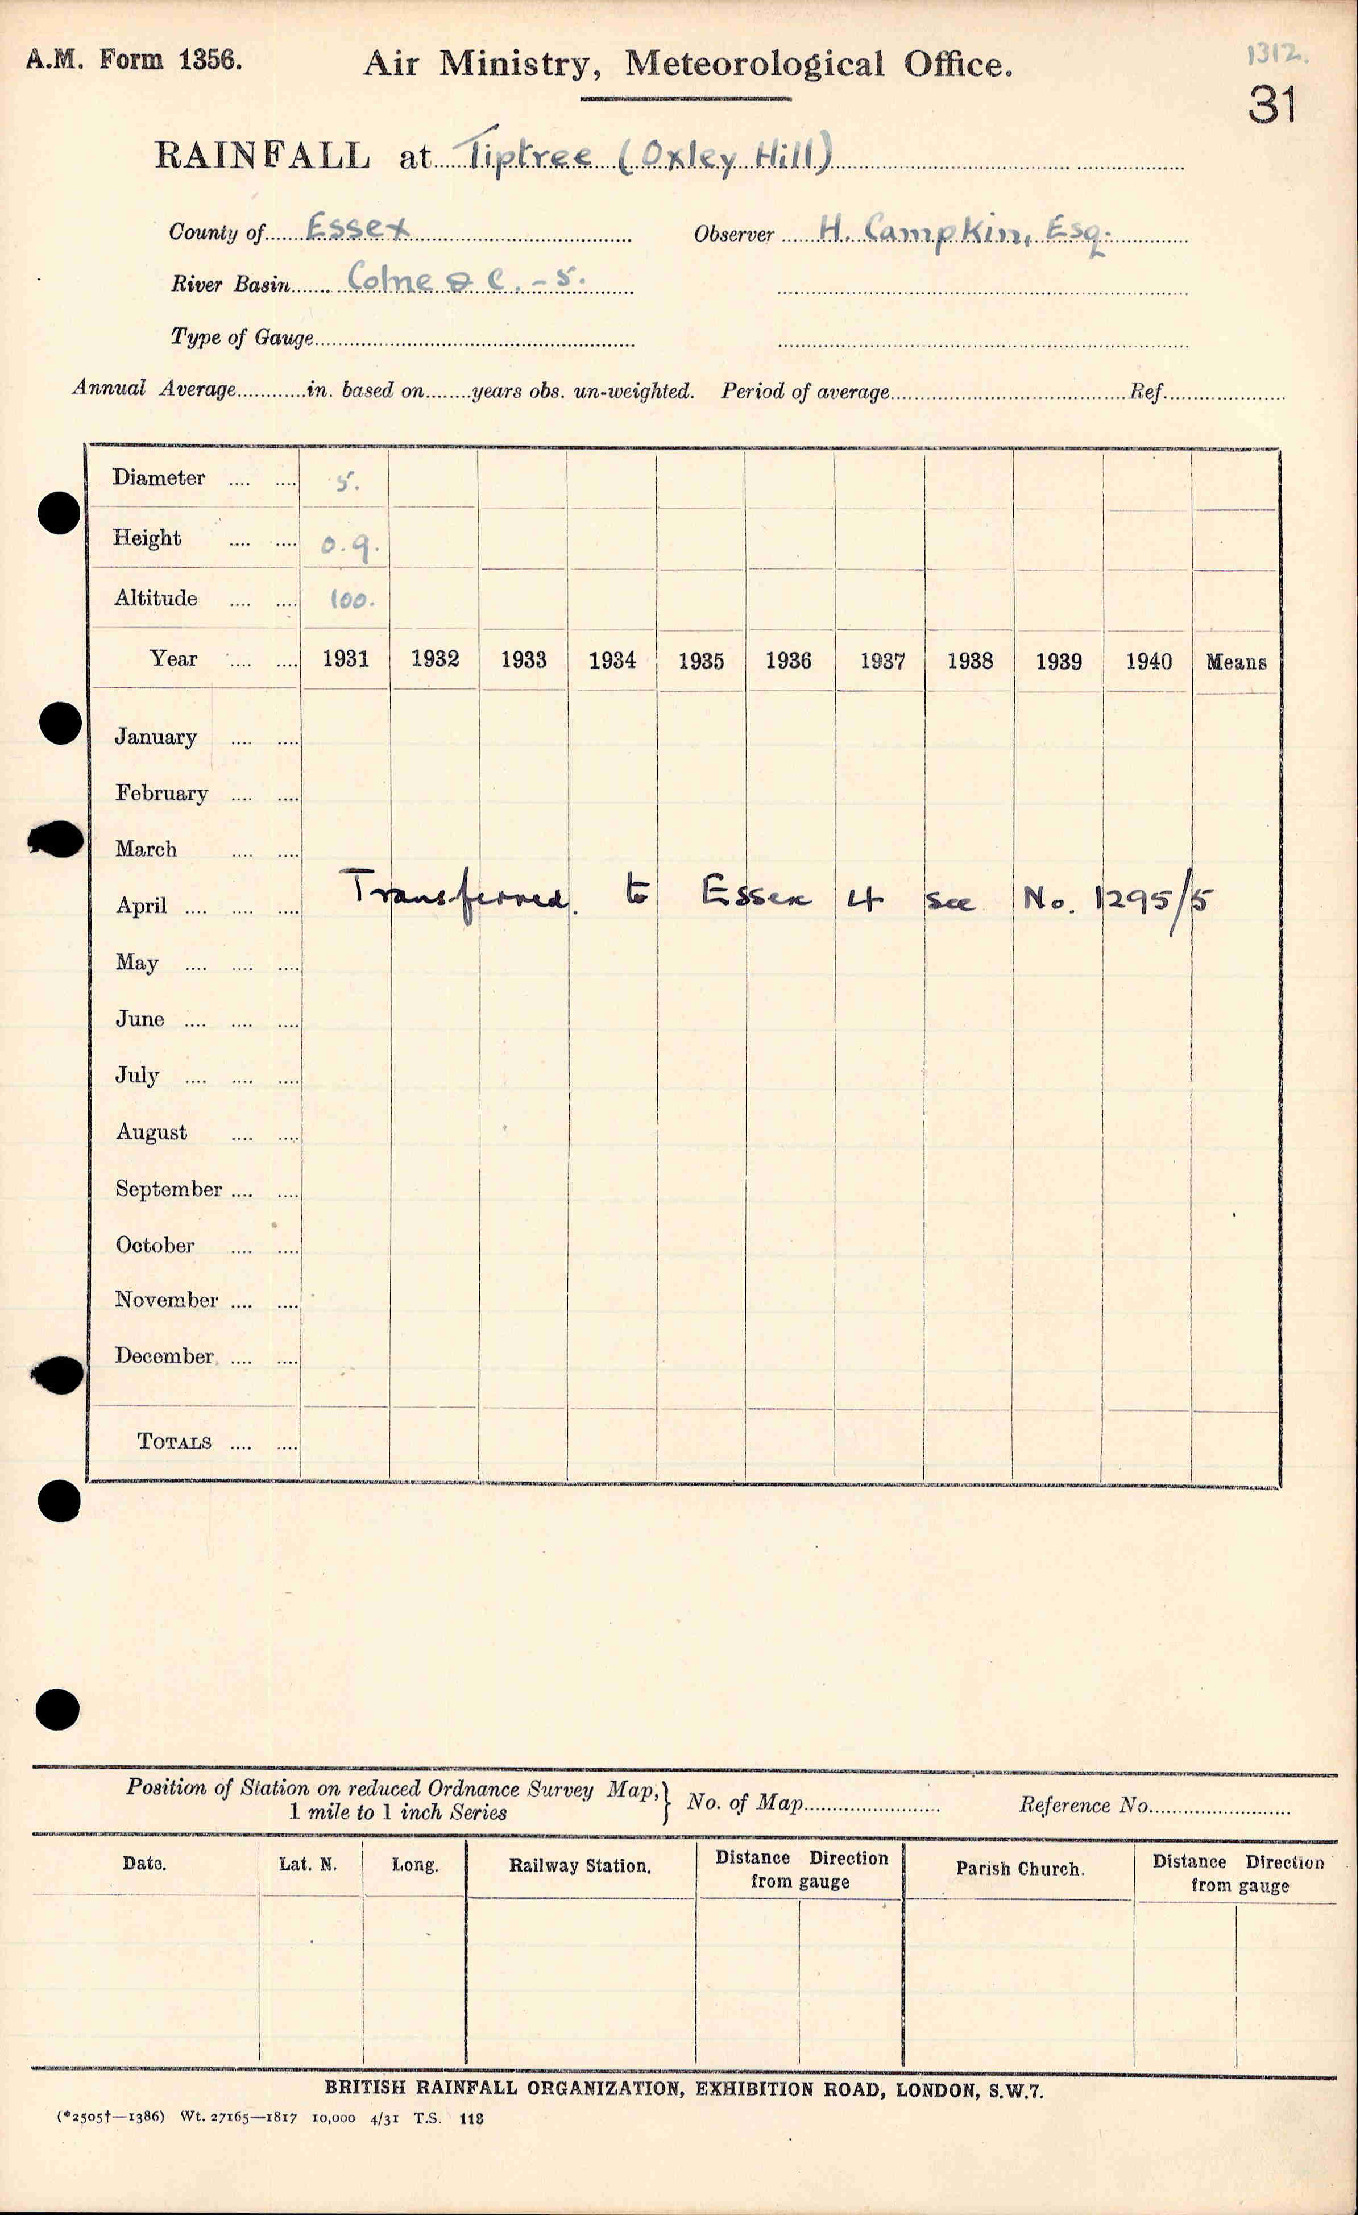 A.M. Form 1356.
Air Ministry, Meteorological Office.
1312.
31
RAINFALL at Tiptree (Oxley Hill)
County of Essex Observer H. Campkin, Esq.
River Basin Colne & C. - 5.
Type of Gauge
Annual Average in. based on years obs. un-weighted. Period of average Ref.
Diameter 5.
Height 0.9.
Altitude 100.
Year 1931 1932 1933 1934 1935 1936 1937 1938 1939 1940 Means
January
February
March
April Transferred. to Essex 4 see No. 1295/5
May
June
July
August
September
October
November
December
TOTALS
Position of Station on reduced Ordnance Survey Map,} No. of Map Reference No.
1 mile to 1 inch Series
Date. Lat. N. Long. Railway Station. Distance Direction from gauge Parish Church. Distance Direction from gauge
BRITISH RAINFALL ORGANIZATION, EXHIBITION ROAD, LONDON, S.W.7.
(*2505†—1386) Wt. 27165—1817 10,000 4/31 T.S. 118